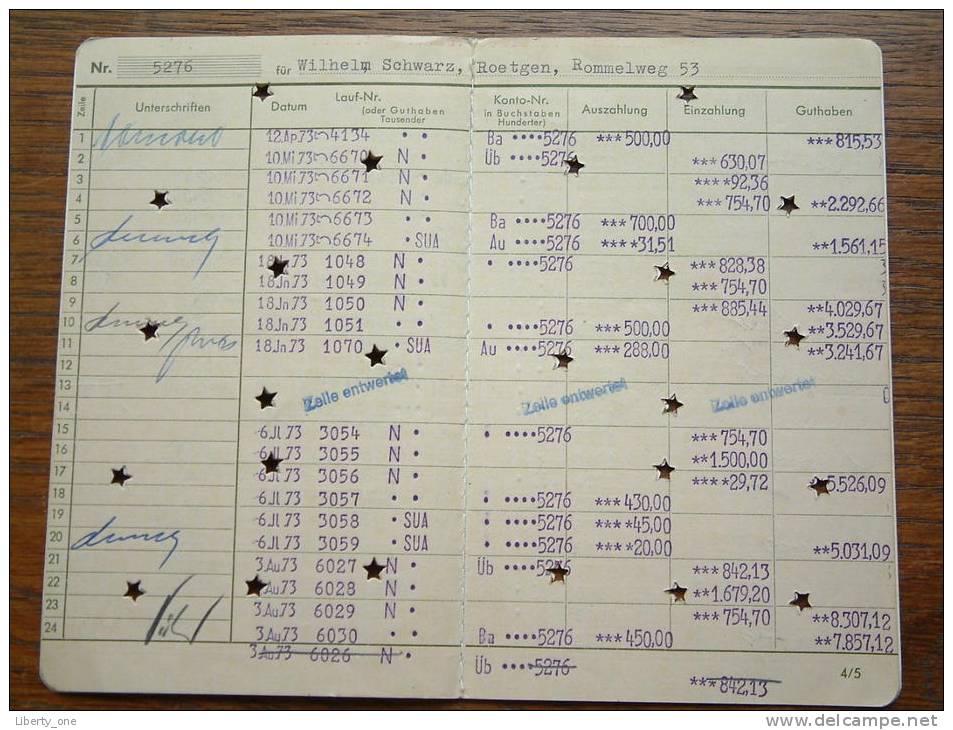 Nr. 5276 für Wilhelm Schwarz, Roetgen, Rommelweg 53
Zeile Unterschriften Datum Lauf-Nr. (oder Guthaben Tausender) Konto-Nr. in Buchstaben Hunderter) Auszahlung Einzahlung Guthaben
1 12.Ap.73 4134 • • Ba ••••5276 ***500,00 ***815,53
2 10.Mi.73 6670 N • Üb ••••5276 ***630,07
3 10.Mi.73 6671 N • ****92,36
4 10.Mi.73 6672 N • ***754,70 **2.292,66
5 10.Mi.73 6673 • • Ba ••••5276 ***700,00
6 10.Mi.73 6674 • SUA Au ••••5276 ****31,51 **1.561,15
7 18.Jn.73 1048 N • • ••••5276 ***828,38
8 18.Jn.73 1049 N • ***754,70
9 18.Jn.73 1050 N • ***885,44 **4.029,67
10 18.Jn.73 1051 • • • ••••5276 ***500,00 **3.529,67
11 18.Jn.73 1070 • SUA Au ••••5276 ***288,00 **3.241,67
12
13 Zeile entwertet Zeile entwertet Zeile entwertet
14
15 6.Jl.73 3054 N • • ••••5276 ***754,70
16 6.Jl.73 3055 N • **1.500,00
17 6.Jl.73 3056 N • ****29,72 5.526,09
18 6.Jl.73 3057 • • • ••••5276 ***430,00
19 6.Jl.73 3058 • SUA • ••••5276 ****45,00
20 6.Jl.73 3059 • SUA • ••••5276 ****20,00 **5.031,09
21 3.Au.73 6027 N • Üb ••••5276 ***842,13
22 3.Au.73 6028 N • **1.679,20
23 3.Au.73 6029 N • ***754,70 **8.307,12
24 3.Au.73 6030 • • Ba ••••5276 ***450,00 **7.857,12
3.Au.73 6026 N • Üb ••••5276 ***842,13
4/5
Liberty_one
delcampe.net